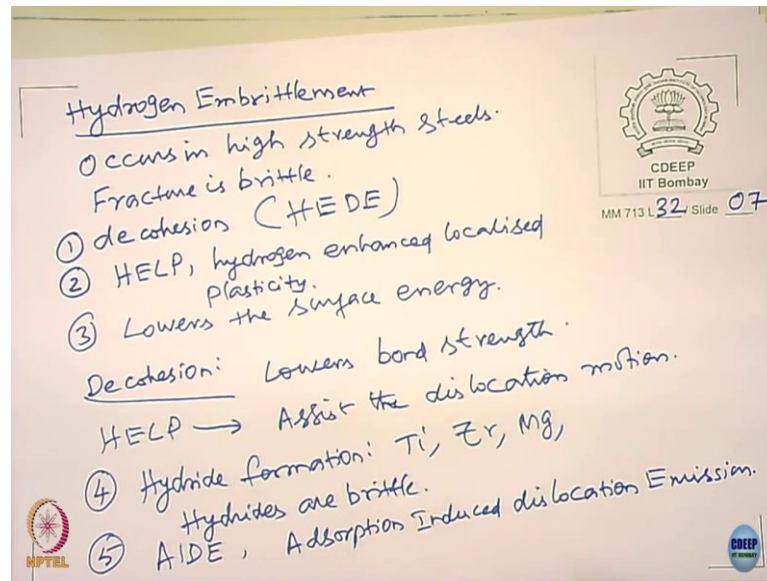 Hydrogen Embrittlement
Occurs in high strength steels.
Fracture is brittle.
① decohesion (HEDE)
② HELP, hydrogen enhanced localised
plasticity.
③ Lowers the surface energy.
Decohesion: Lowers bond strength.
HELP → Assist the dislocation motion.
④ Hydride formation: Ti, Zr, Mg,
Hydrides are brittle.
⑤ AIDE, Adsorption Induced dislocation Emission.
CDEEP
IIT Bombay
MM 713 L 32 / Slide 07
NPTEL
CDEEP
IIT BOMBAY